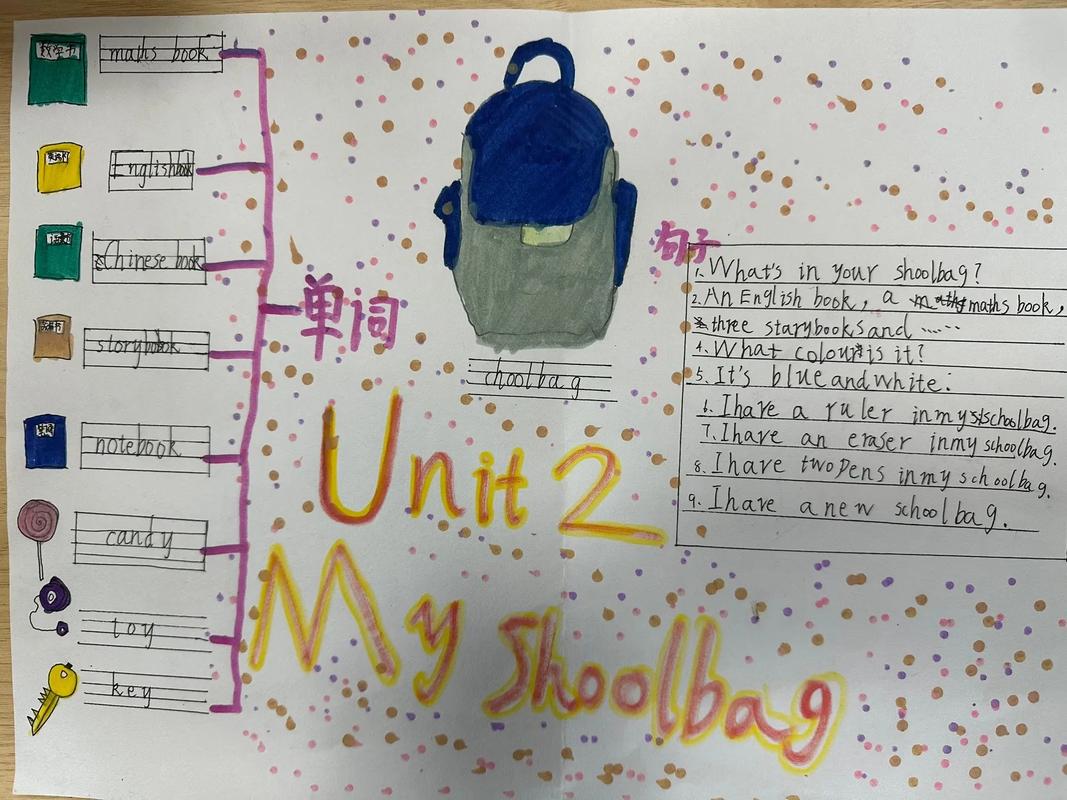 数学书
maths book
English book
Chinese book
storybook
notebook
candy
toy
key
单词
choolbag
Unit 2
My Shoolbag
句子
1. What's in your shoolbag?
2. An English book, a maths book,
three starybooks and ......
4. What colour is it?
5. It's blue and white.
6. I have a ruler in my schoolbag.
7. I have an eraser in my schoolbag.
8. I have two pens in my schoolbag.
9. I have a new schoolbag.